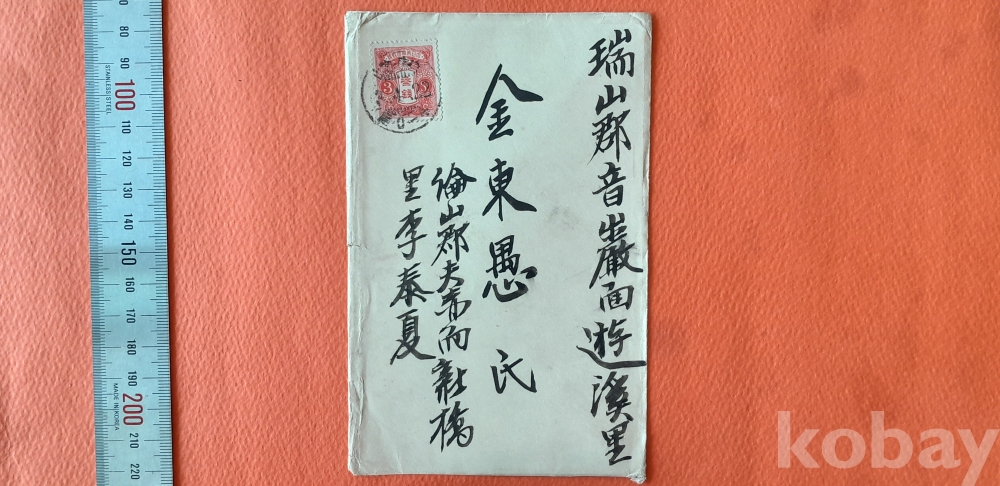 瑞山郡音巖面遊溪里
金東愚氏
論山郡夫赤面新橋
里李泰夏
3
STAINLESS STEEL
MADE IN KOREA
80
90
100
110
120
130
140
150
160
170
180
190
200
210
220
kobay